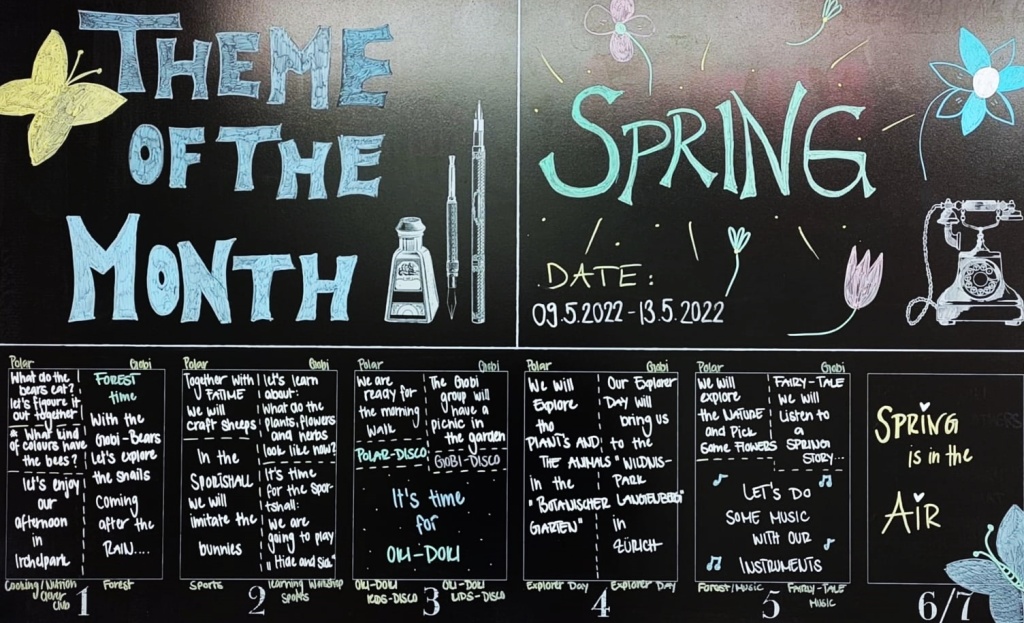 THEME
OF THE
MONTH
SPRING
DATE:
09.5.2022 - 13.5.2022
Polar
What do the
bears eat?
let's figure it
out together
* What kind
of colours have
the bees?
let's enjoy
our
afternoon
in
Irchelpark
Cooking/Nutrion
Clever
Club
Gobi
FOREST
time
With the
Gobi-Bears
Let's explore
the snails
Coming
after the
RAIN....
Forest
1
Polar
Together with
FATIME
we will
craft sheeps
In the
SPORTSHALL
we will
imitate the
bunnies
SPORTS
Gobi
let's learn
about:
What do the
plants, flowers
and herbs
look like now?
It's time
for the Spor-
tshall:
we are
going to play
"Hide and sick"
learning Workshop
Sports
2
Polar
We are
ready for
the morning
Walk
POLAR-DISCO
Gobi
The Gobi
group will
have a
picnic in
the garden
GOBI-DISCO
It's time
for
OKI-DOKI
OKI-DOKI
KIDS-DISCO
OKI-DOKI
KIDS-DISCO
3
Polar
We will
Explore
the
PLANTS AND
THE ANIMALS
in the
"BOTANISCHER
GARTEN"
Explorer Day
Gobi
Our Explorer
DAY will
bring us
to the
"WILDNIS-
PARK
LANGENBERG"
in
ZÜRICH
Explorer Day
4
Polar
we will
explore
the NATURE
and Pick
Some FLOWERS
Gobi
FAIRY-TALE
we will
Listen to
a
SPRING
STORY...
LET'S DO
SOME MUSIC
WITH OUR
INSTRUMENTS
FOREST/MUSIC
FAIRY-TALE
MUSIC
5
SPRING
is in the
AIR
6/7